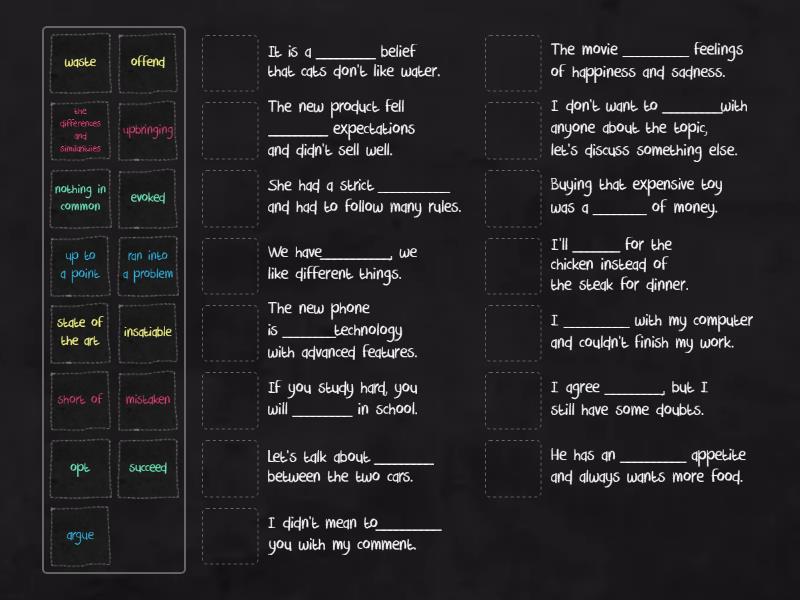 waste
offend
the
differences
and
similarities
upbringing
nothing in
common
evoked
up to
a point
ran into
a problem
state of
the art
insatiable
short of
mistaken
opt
succeed
argue
It is a _________ belief
that cats don't like water.
The new product fell
_________ expectations
and didn't sell well.
She had a strict ___________
and had to follow many rules.
We have___________, we
like different things.
The new phone
is ________technology
with advanced features.
If you study hard, you
will _________ in school.
Let's talk about _________
between the two cars.
I didn't mean to__________
you with my comment.
The movie __________ feelings
of happiness and sadness.
I don't want to _________with
anyone about the topic,
let's discuss something else.
Buying that expensive toy
was a ________ of money.
I'll _______ for the
chicken instead of
the steak for dinner.
I __________ with my computer
and couldn't finish my work.
I agree _________, but I
still have some doubts.
He has an __________ appetite
and always wants more food.